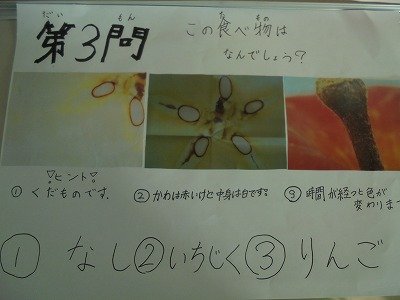 だい もん
第3問
この食べ物は
た もの
なんでしょう?
ヒント
①くだものです.
②かわは赤いけど中身は白です。
③時間が経つと色が
変わりま
①なし②いちじく③りんご